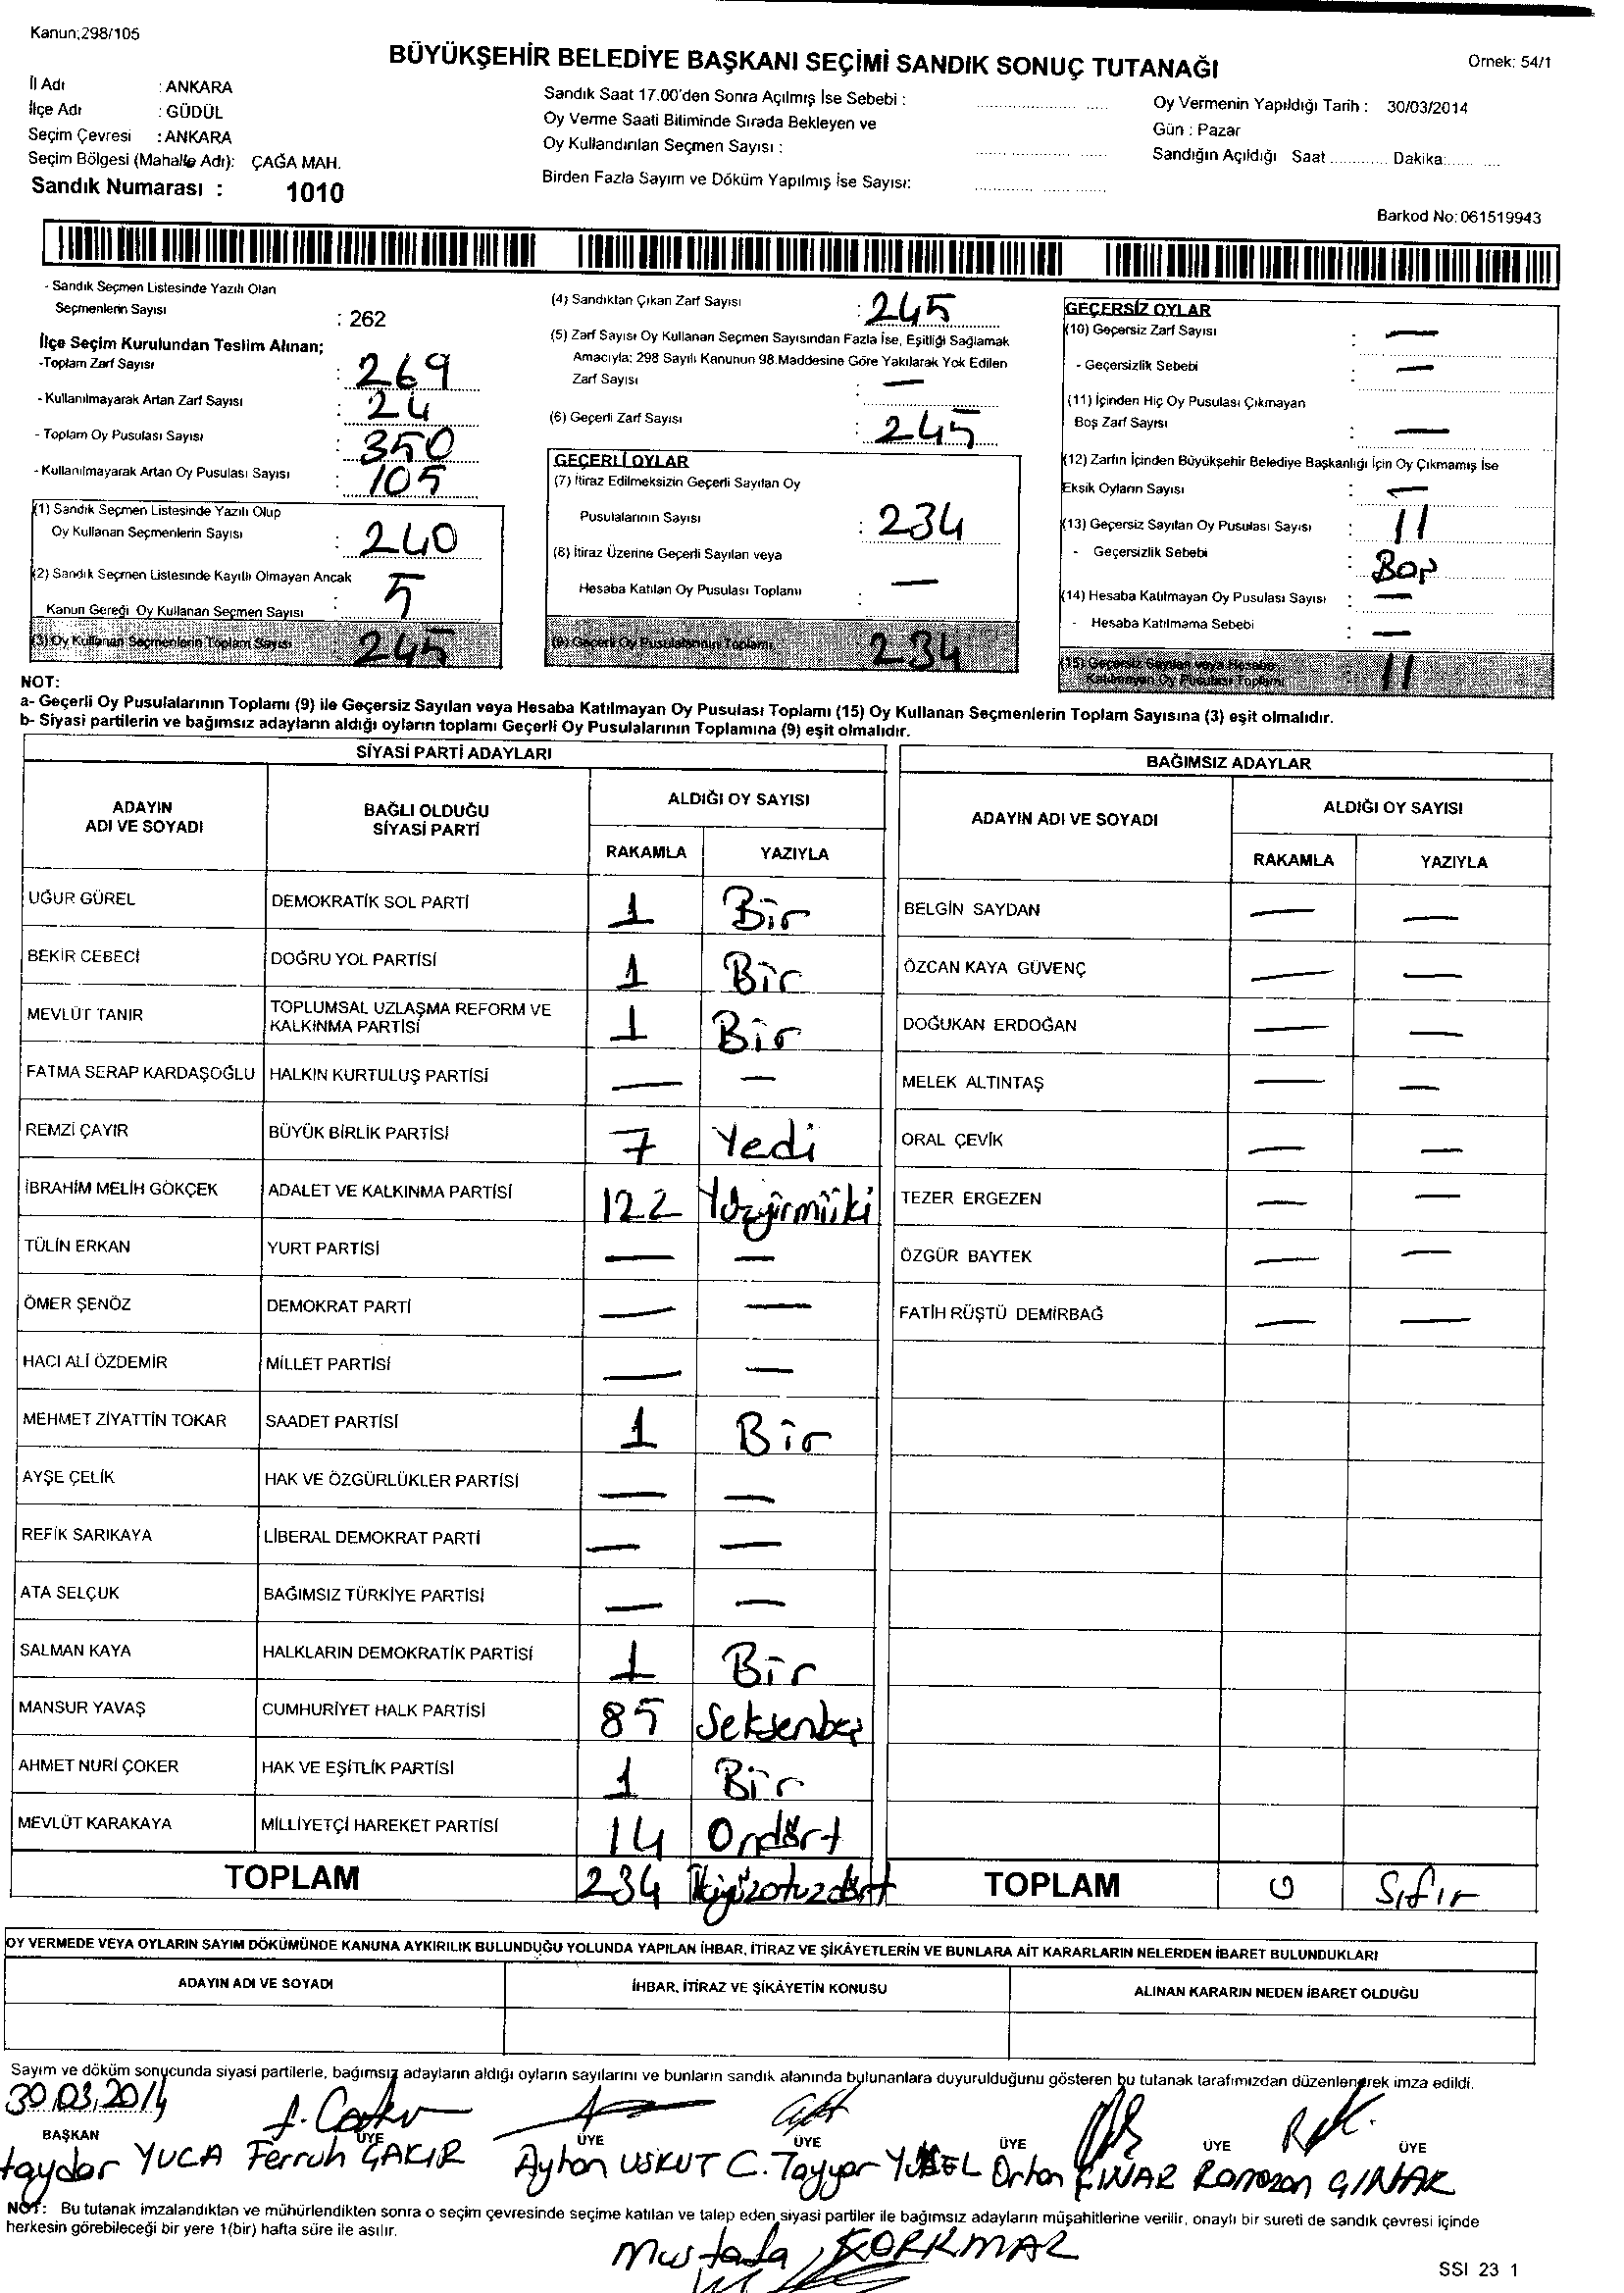 Kanun;298/105
BÜYÜKŞEHİR BELEDİYE BAŞKANI SEÇİMİ SANDIK SONUÇ TUTANAĞI
Örnek: 54/1
İl Adı : ANKARA
İlçe Adı : GÜDÜL
Seçim Çevresi : ANKARA
Seçim Bölgesi (Mahalle Adı): ÇAĞA MAH.
Sandık Numarası : 1010
Sandık Saat 17.00'den Sonra Açılmış İse Sebebi :
Oy Verme Saati Bitiminde Sırada Bekleyen ve
Oy Kullandırılan Seçmen Sayısı :
Birden Fazla Sayım ve Döküm Yapılmış İse Sayısı:
Oy Vermenin Yapıldığı Tarih : 30/03/2014
Gün : Pazar
Sandığın Açıldığı Saat ............ Dakika:...... ....
Barkod No: 061519943
- Sandık Seçmen Listesinde Yazılı Olan
Seçmenlerin Sayısı : 262
İlçe Seçim Kurulundan Teslim Alınan;
-Toplam Zarf Sayısı : 269
- Kullanılmayarak Artan Zarf Sayısı : 24
- Toplam Oy Pusulası Sayısı : 350
- Kullanılmayarak Artan Oy Pusulası Sayısı : 105
(1) Sandık Seçmen Listesinde Yazılı Olup
Oy Kullanan Seçmenlerin Sayısı : 240
(2) Sandık Seçmen Listesinde Kayıtlı Olmayan Ancak
Kanun Gereği Oy Kullanan Seçmen Sayısı : 5
(3) Oy Kullanan Seçmenlerin Toplam Sayısı 245
(4) Sandıktan Çıkan Zarf Sayısı : 245
(5) Zarf Sayısı Oy Kullanan Seçmen Sayısından Fazla İse, Eşitliği Sağlamak
Amacıyla; 298 Sayılı Kanunun 98.Maddesine Göre Yakılarak Yok Edilen
Zarf Sayısı : —
(6) Geçerli Zarf Sayısı : 245
GEÇERLİ OYLAR
(7) İtiraz Edilmeksizin Geçerli Sayılan Oy
Pusulalarının Sayısı : 234
(8) İtiraz Üzerine Geçerli Sayılan veya
Hesaba Katılan Oy Pusulası Toplamı : —
(9) Geçerli Oy Pusulalarının Toplamı 234
GEÇERSİZ OYLAR
(10) Geçersiz Zarf Sayısı : —
- Geçersizlik Sebebi : —
(11) İçinden Hiç Oy Pusulası Çıkmayan
Boş Zarf Sayısı : —
(12) Zarfın İçinden Büyükşehir Belediye Başkanlığı İçin Oy Çıkmamış İse
Eksik Oyların Sayısı : —
(13) Geçersiz Sayılan Oy Pusulası Sayısı : 11
- Geçersizlik Sebebi : Boş
(14) Hesaba Katılmayan Oy Pusulası Sayısı : —
- Hesaba Katılmama Sebebi : —
(15) Geçersiz Sayılan veya Hesaba
Katılmayan Oy Pusulası Toplamı 11
NOT:
a- Geçerli Oy Pusulalarının Toplamı (9) ile Geçersiz Sayılan veya Hesaba Katılmayan Oy Pusulası Toplamı (15) Oy Kullanan Seçmenlerin Toplam Sayısına (3) eşit olmalıdır.
b- Siyasi partilerin ve bağımsız adayların aldığı oyların toplamı Geçerli Oy Pusulalarının Toplamına (9) eşit olmalıdır.
SİYASİ PARTİ ADAYLARI
ADAYIN ADI VE SOYADI BAĞLI OLDUĞU SİYASİ PARTİ ALDIĞI OY SAYISI
RAKAMLA YAZIYLA
UĞUR GÜREL DEMOKRATİK SOL PARTİ 1 Bir
BEKİR CEBECİ DOĞRU YOL PARTİSİ 1 Bir
MEVLÜT TANIR TOPLUMSAL UZLAŞMA REFORM VE KALKINMA PARTİSİ 1 Bir
FATMA SERAP KARDAŞOĞLU HALKIN KURTULUŞ PARTİSİ — —
REMZİ ÇAYIR BÜYÜK BİRLİK PARTİSİ 7 Yedi
İBRAHİM MELİH GÖKÇEK ADALET VE KALKINMA PARTİSİ 122 Yüzyirmiiki
TÜLİN ERKAN YURT PARTİSİ — —
ÖMER ŞENÖZ DEMOKRAT PARTİ — —
HACI ALİ ÖZDEMİR MİLLET PARTİSİ — —
MEHMET ZİYATTİN TOKAR SAADET PARTİSİ 1 Bir
AYŞE ÇELİK HAK VE ÖZGÜRLÜKLER PARTİSİ — —
REFİK SARIKAYA LİBERAL DEMOKRAT PARTİ — —
ATA SELÇUK BAĞIMSIZ TÜRKİYE PARTİSİ — —
SALMAN KAYA HALKLARIN DEMOKRATİK PARTİSİ 1 Bir
MANSUR YAVAŞ CUMHURİYET HALK PARTİSİ 85 Seksenbeş
AHMET NURİ ÇOKER HAK VE EŞİTLİK PARTİSİ 1 Bir
MEVLÜT KARAKAYA MİLLİYETÇİ HAREKET PARTİSİ 14 Ondört
TOPLAM 234 İkiyüzotuzdört
BAĞIMSIZ ADAYLAR
ADAYIN ADI VE SOYADI ALDIĞI OY SAYISI
RAKAMLA YAZIYLA
BELGİN SAYDAN — —
ÖZCAN KAYA GÜVENÇ — —
DOĞUKAN ERDOĞAN — —
MELEK ALTINTAŞ — —
ORAL ÇEVİK — —
TEZER ERGEZEN — —
ÖZGÜR BAYTEK — —
FATİH RÜŞTÜ DEMİRBAĞ — —
TOPLAM 0 Sıfır
OY VERMEDE VEYA OYLARIN SAYIM DÖKÜMÜNDE KANUNA AYKIRILIK BULUNDUĞU YOLUNDA YAPILAN İHBAR, İTİRAZ VE ŞİKÂYETLERİN VE BUNLARA AİT KARARLARIN NELERDEN İBARET BULUNDUKLARI
ADAYIN ADI VE SOYADI İHBAR, İTİRAZ VE ŞİKÂYETİN KONUSU ALINAN KARARIN NEDEN İBARET OLDUĞU
Sayım ve döküm sonucunda siyasi partilerle, bağımsız adayların aldığı oyların sayılarını ve bunların sandık alanında bulunanlara duyurulduğunu gösteren bu tutanak tarafımızdan düzenlenerek imza edildi.
30.03.2014
BAŞKAN ÜYE ÜYE ÜYE ÜYE ÜYE ÜYE
YUCA Ferruh ÇAKIR Ayhan USKUT C. Tayyar YÜKSEL Orhan ÇINAR Ramazan ÇINAR
NOT: Bu tutanak imzalandıktan ve mühürlendikten sonra o seçim çevresinde seçime katılan ve talep eden siyasi partiler ile bağımsız adayların müşahitlerine verilir, onaylı bir sureti de sandık çevresi içinde
herkesin görebileceği bir yere 1(bir) hafta süre ile asılır.
Mustafa KORKMAZ
SSI 23 1